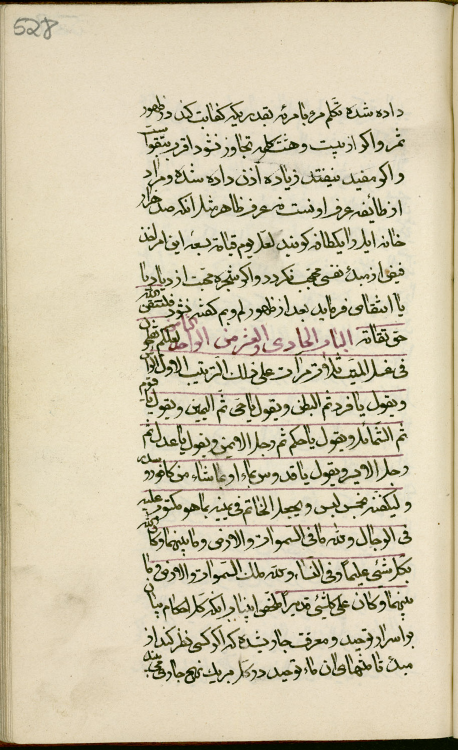 528
داده شده تکلم مرد با مرئه بقدریکه کفایت کند در ظهور
ثمر و اکر از بیست و هشت کلمه تجاوز نشود اقرب بتقوا ست
و اکر مفید نیفتد زیاده اذن داده شده و مراد
از طائفه عرف اوست نه عرف ظاهر مثل آنکه صد هزار
خانه ایل را یک طائفه کویند لعل یوم قیامة بسعه این امر الله
فیضی از مبدء نفسی محتجب نکردد و اکر منجر بمحبت از دیاد یا
با انتفای فرماید بعد از ظهور لم و بم کفته نشود فلتتقن الله
حق تقاته الباب الحادی و العشر من الواحد لعلکم
فی غسل المیت ثلاث مرات علی ذلک الترتیب الاول الرأس
و یقول یا فرد ثم البطن و یقول یا حی ثم الیمین و یقول یا قیوم
ثم الشمائل و یقول یا حکم ثم رجل الایمن و یقول یا عدل ثم
رجل الایسر و یقول یا قدوس بماء او بما شاء من کافور و سدر
و لیکفنه بخمس لبس و یجعل الخاتم فی یمینه بما هو مکتوب علیه
فی الرجال و لله ما فی السموات و الارض و ما بینهما و کان الله
بکل شیئی علیما و فی النساء و لله ملک السموات و الارض و ما
بینهما و کان علی کل شیئی قدیرا ملخص این باب آنکه کل احکام بیان
بر اسرار توحید و معرفت جاری شده که اکر کسی نظر کند از
مبدء تا منتهای آن ماء توحید در کل بر یک نهج جاری می بیند